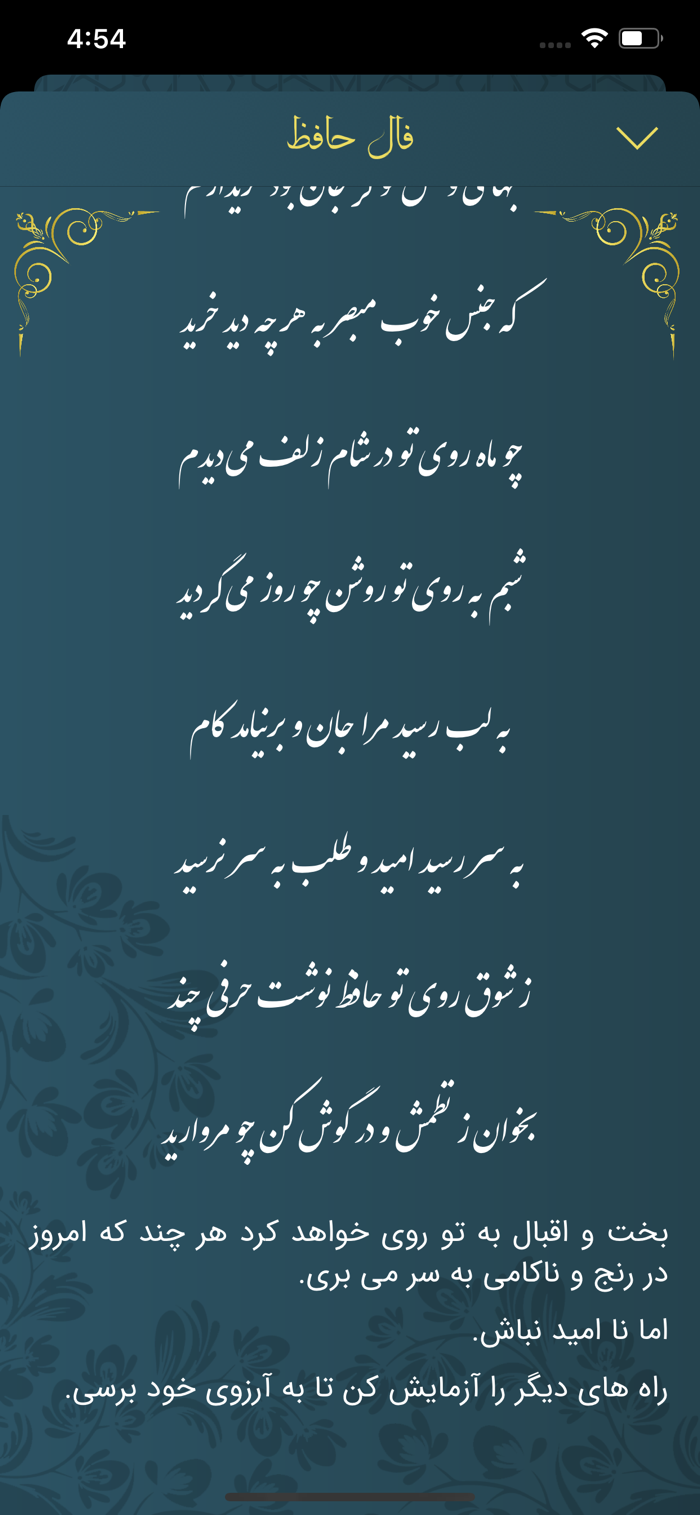 4:54
فال حافظ
که جنس خوب مبصر به هر چه دید خرید
چو ماه روی تو در شام زلف می‌دیدم
شبم به روی تو روشن چو روز می‌گردید
به لب رسید مرا جان و برنیامد کام
به سر رسید امید و طلب به سر نرسید
ز شوق روی تو حافظ نوشت حرفی چند
بخوان ز نظمش و در گوش کن چو مروارید
بخت و اقبال به تو روی خواهد کرد هر چند که امروز
در رنج و ناکامی به سر می بری.
اما نا امید نباش.
راه های دیگر را آزمایش کن تا به آرزوی خود برسی.